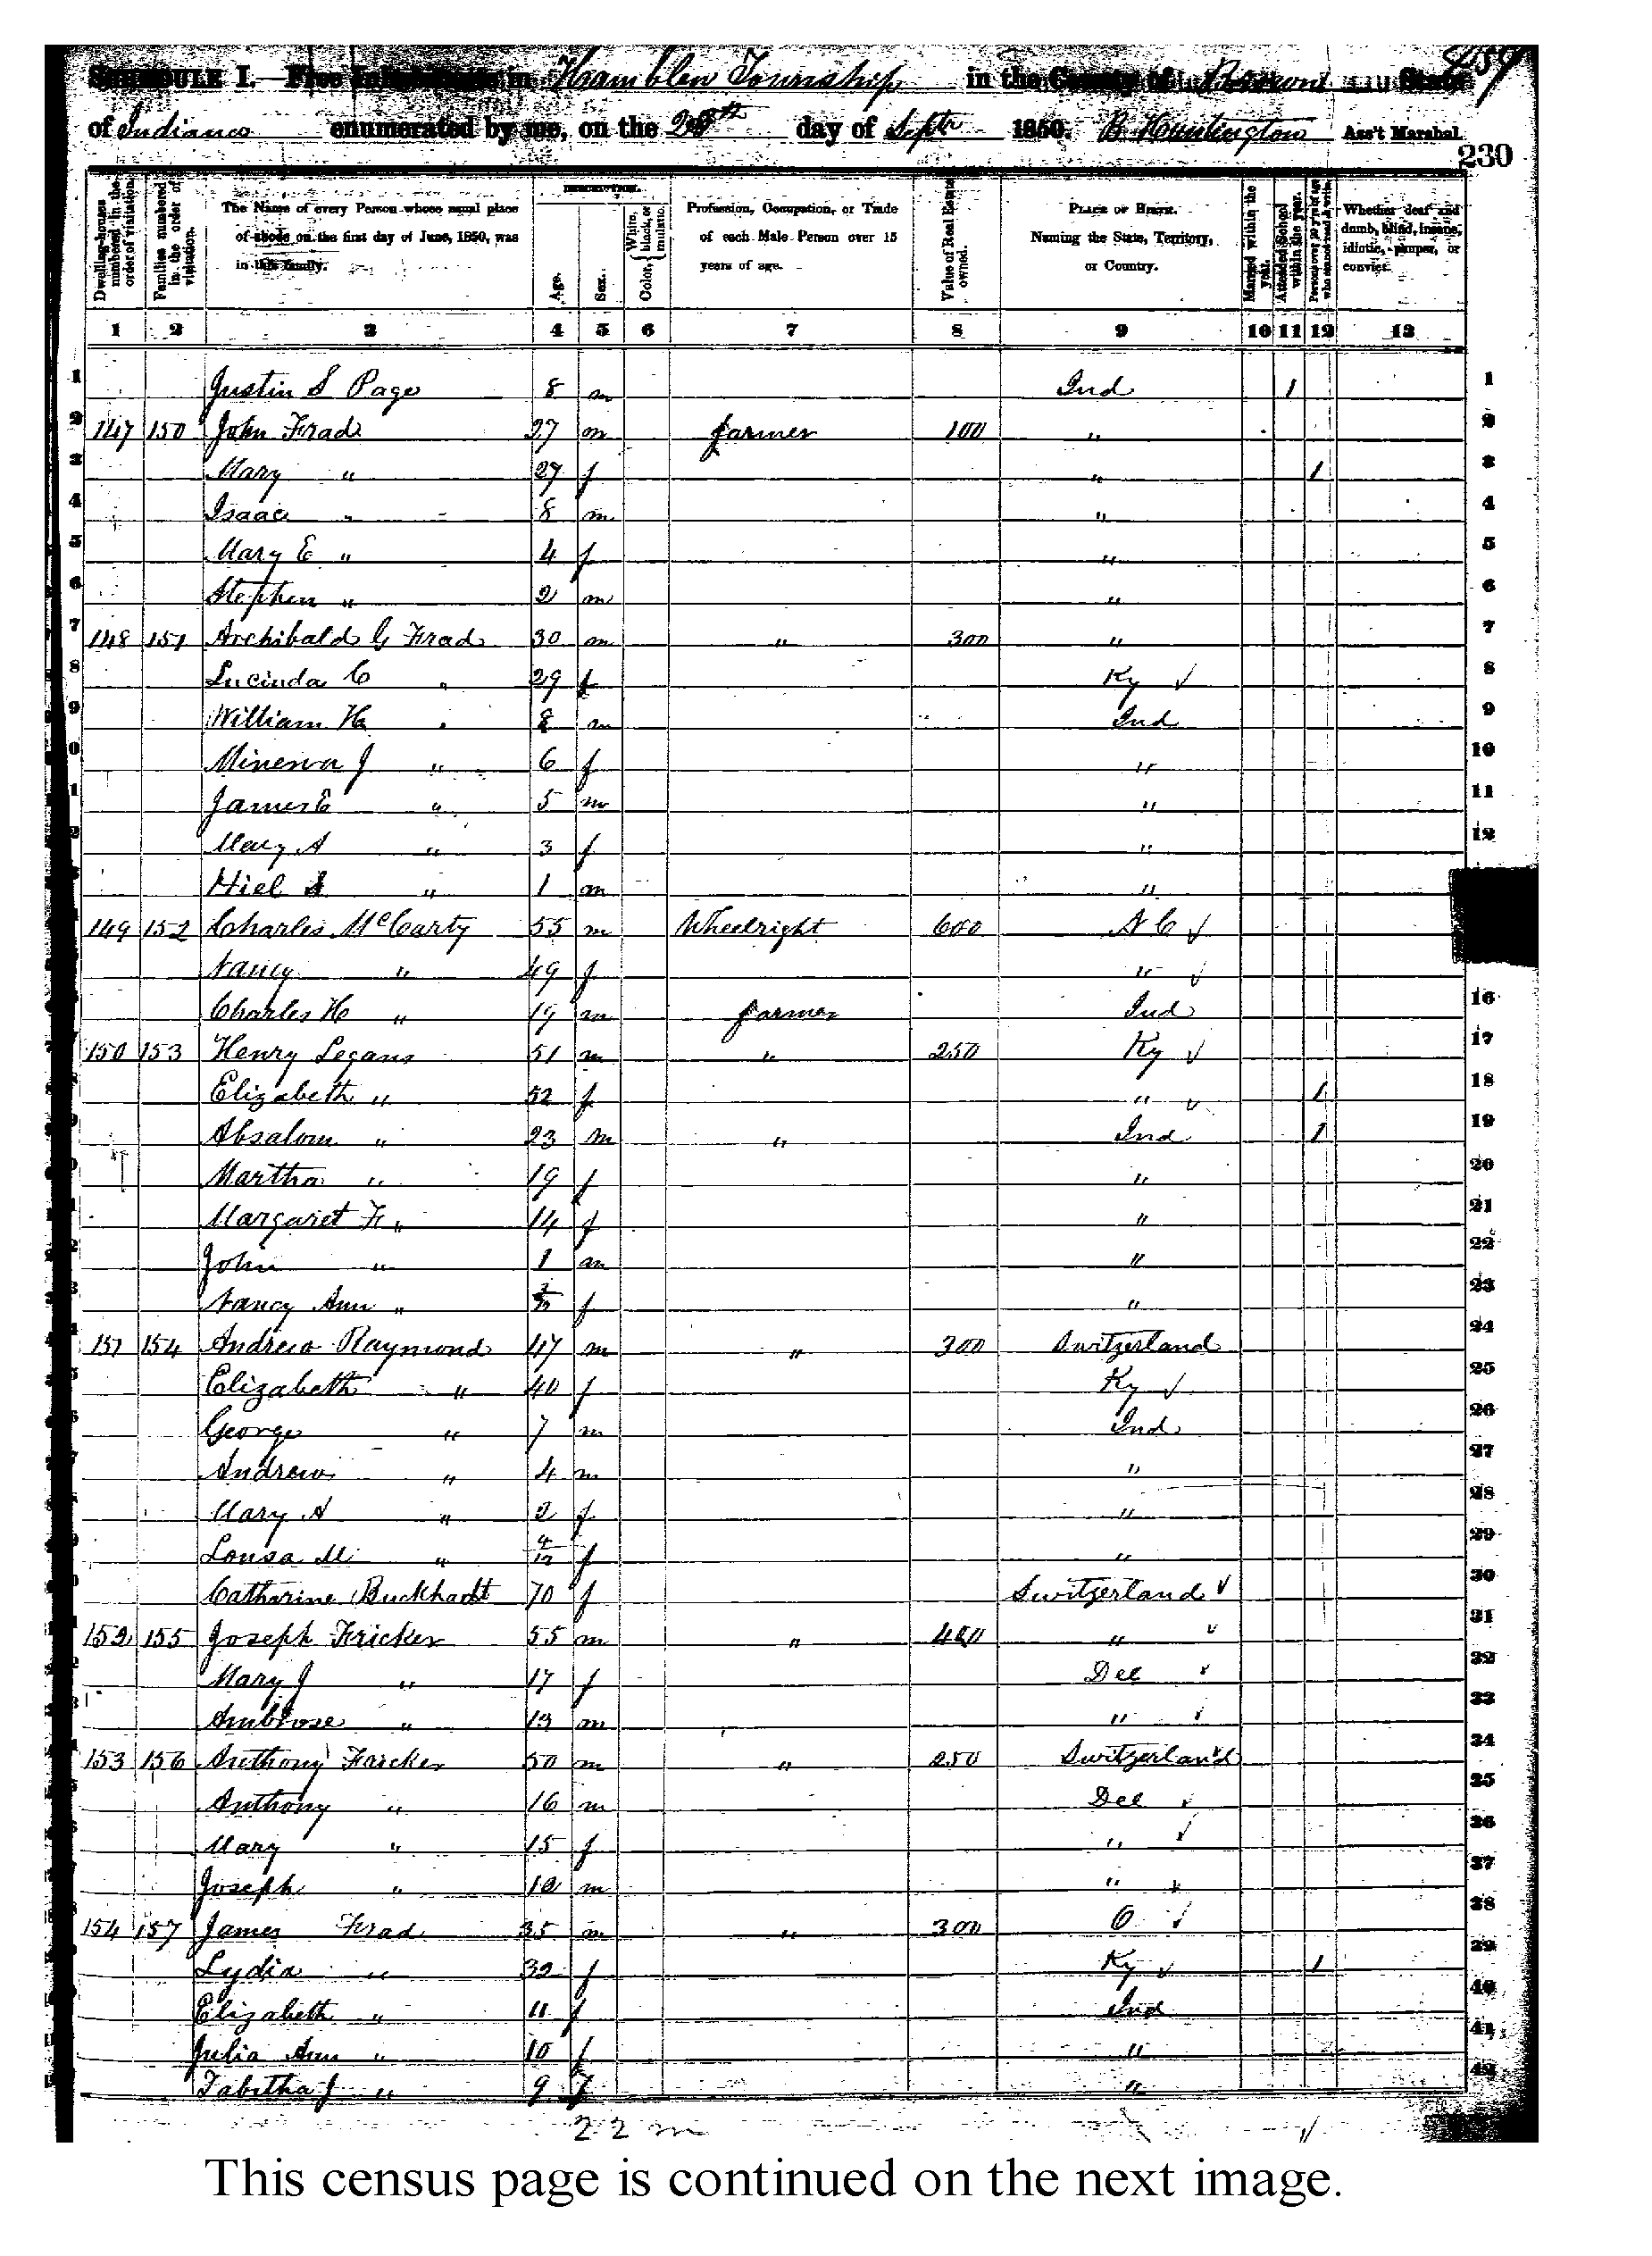 459
SCHEDULE I. Free Inhabitants in Hamblen Township in the County of Brown State
of Indiana enumerated by me, on the 28th day of Septr 1850. B Huntington Ass't Marshal.
230
Dwelling-houses numbered in the order of visitation.
Families numbered in the order of visitation.
The Name of every Person whose usual place of abode on the first day of June, 1850, was in this family.
DESCRIPTION.
Age.
Sex.
Color, White, black, or mulatto.
Profession, Occupation, or Trade of each Male Person over 15 years of age.
Value of Real Estate owned.
PLACE OF BIRTH. Naming the State, Territory, or Country.
Married within the year.
Attended School within the year.
Persons over 20 y'rs of age who cannot read & write.
Whether deaf and dumb, blind, insane, idiotic, pauper, or convict.
1 2 3 4 5 6 7 8 9 10 11 12 13
1 Justin S Page 8 m Ind 1 1
2 147 150 John Frad 27 m farmer 100 " 2
3 Mary " 27 f " 1 3
4 Isaac " 8 m " 4
5 Mary E " 4 f " 5
6 Stephen " 2 m " 6
7 148 151 Archibald G Frad 30 m " 300 " 7
8 Lucinda C " 29 f Ky ✓ 8
9 William H " 8 m Ind 9
0 Minerva J " 6 f " 10
1 James E " 5 m " 11
2 Mary A " 3 f " 12
Hiel S " 1 m "
149 152 Charles McCarty 55 m Wheelright 600 N C ✓
Nancy " 49 f " ✓
Charles H " 19 m farmer Ind 16
150 153 Henry Legans 51 m " 250 Ky ✓ 17
Elizabeth " 52 f " ✓ 1 18
Absalom " 23 m " Ind 1 19
Martha " 19 f " 20
Margaret F " 14 f " 21
John " 1 m " 22
Nancy Ann " f " 23
151 154 Andrew Raymond 47 m " 300 Switzerland 24
Elizabeth " 40 f Ky ✓ 25
George " 7 m Ind 26
Andrew " 4 m " 27
Mary A " 2 f " 28
Lousa M " 4/12 f " 29
Catharine Buckhadt 70 f Switzerland ✓ 30
152 155 Joseph Fricker 55 m " 400 " ✓ 31
Mary J " 17 f Del ✓ 32
Ambrose " 13 m " ✓ 33
153 156 Anthony Fricker 50 m " 250 Switzerland 34
Anthony " 16 m Del ✓ 35
Mary " 15 f " ✓ 36
Joseph " 10 m " ✓ 37
154 157 James Frad 35 m " 300 O ✓ 38
Lydia " 32 f Ky ✓ 1 39
Elizabeth " 11 f Ind 40
Julia Ann " 10 f " 41
Tabitha J " 9 f " 42
22 m
This census page is continued on the next image.